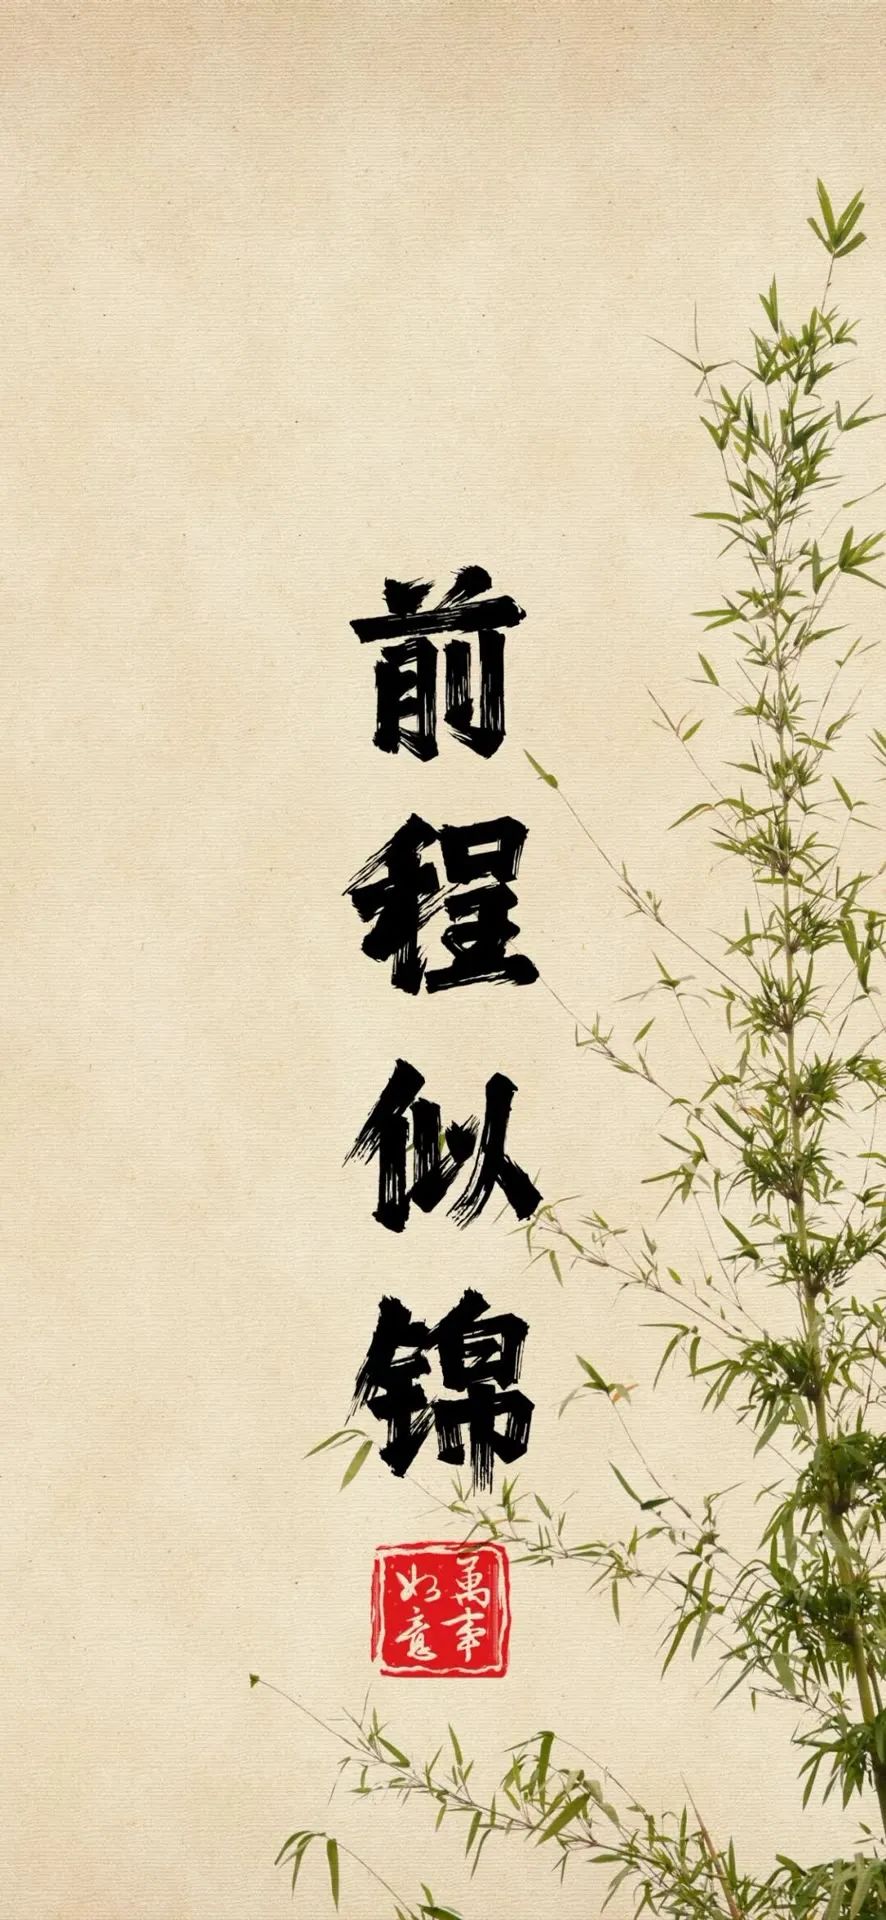 前程似锦
萬事
如意